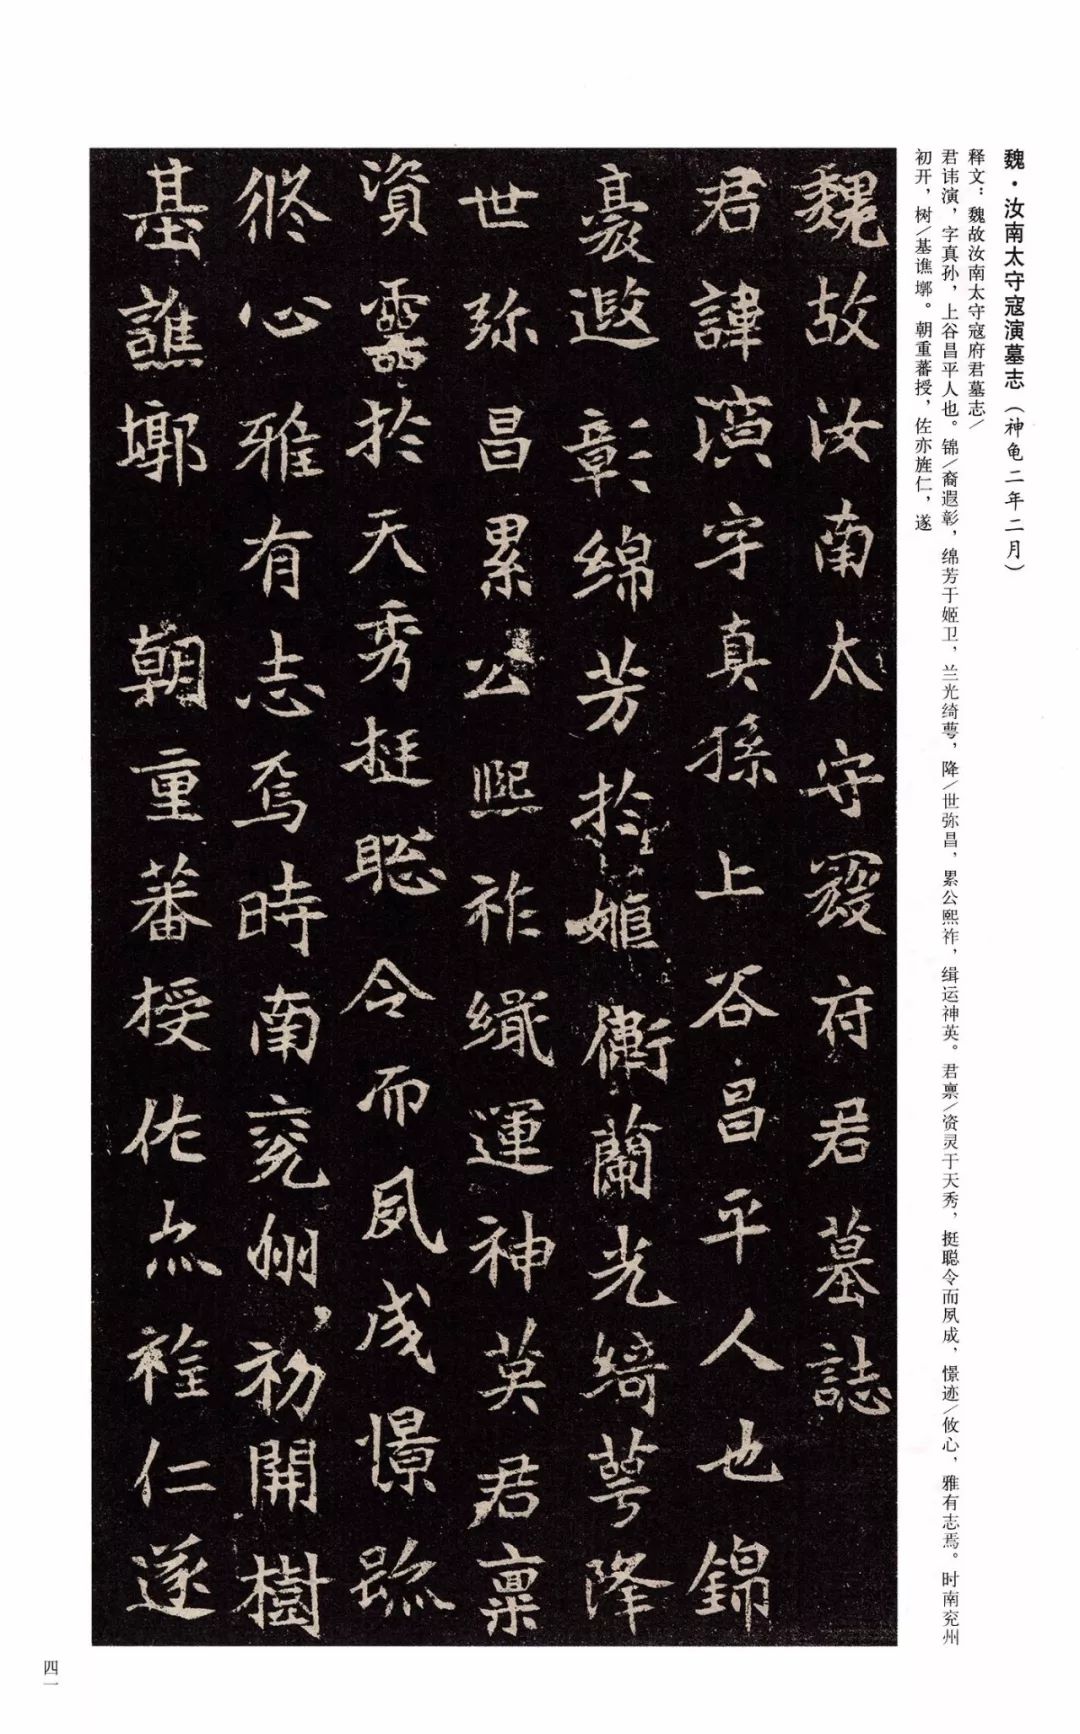 魏·汝南太守寇演墓志（神龟二年二月）
释文：魏故汝南太守寇府君墓志/
君讳演，字真孙，上谷昌平人也。锦/裔遐彰，绵芳于姬卫，兰光绮萼，降/世弥昌，累公熙祚，缉运神英。君禀/资灵于天秀，挺聪令而夙成，憬迹/攸心，雅有志焉。时南兖州
初开，树/基谯墎。朝重蕃授，佐亦旌仁，遂
魏故汝南太守寇府君墓誌
君諱演字真孫上谷昌平人也錦
裔遐彰綿芳於姬衛蘭光綺萼降
世弥昌累公熙祚緝運神英君稟
資靈於天秀挺聡令而夙成憬跡
攸心雅有志焉時南兖州初開樹
基譙墎朝重蕃授佐亦旌仁遂
四一